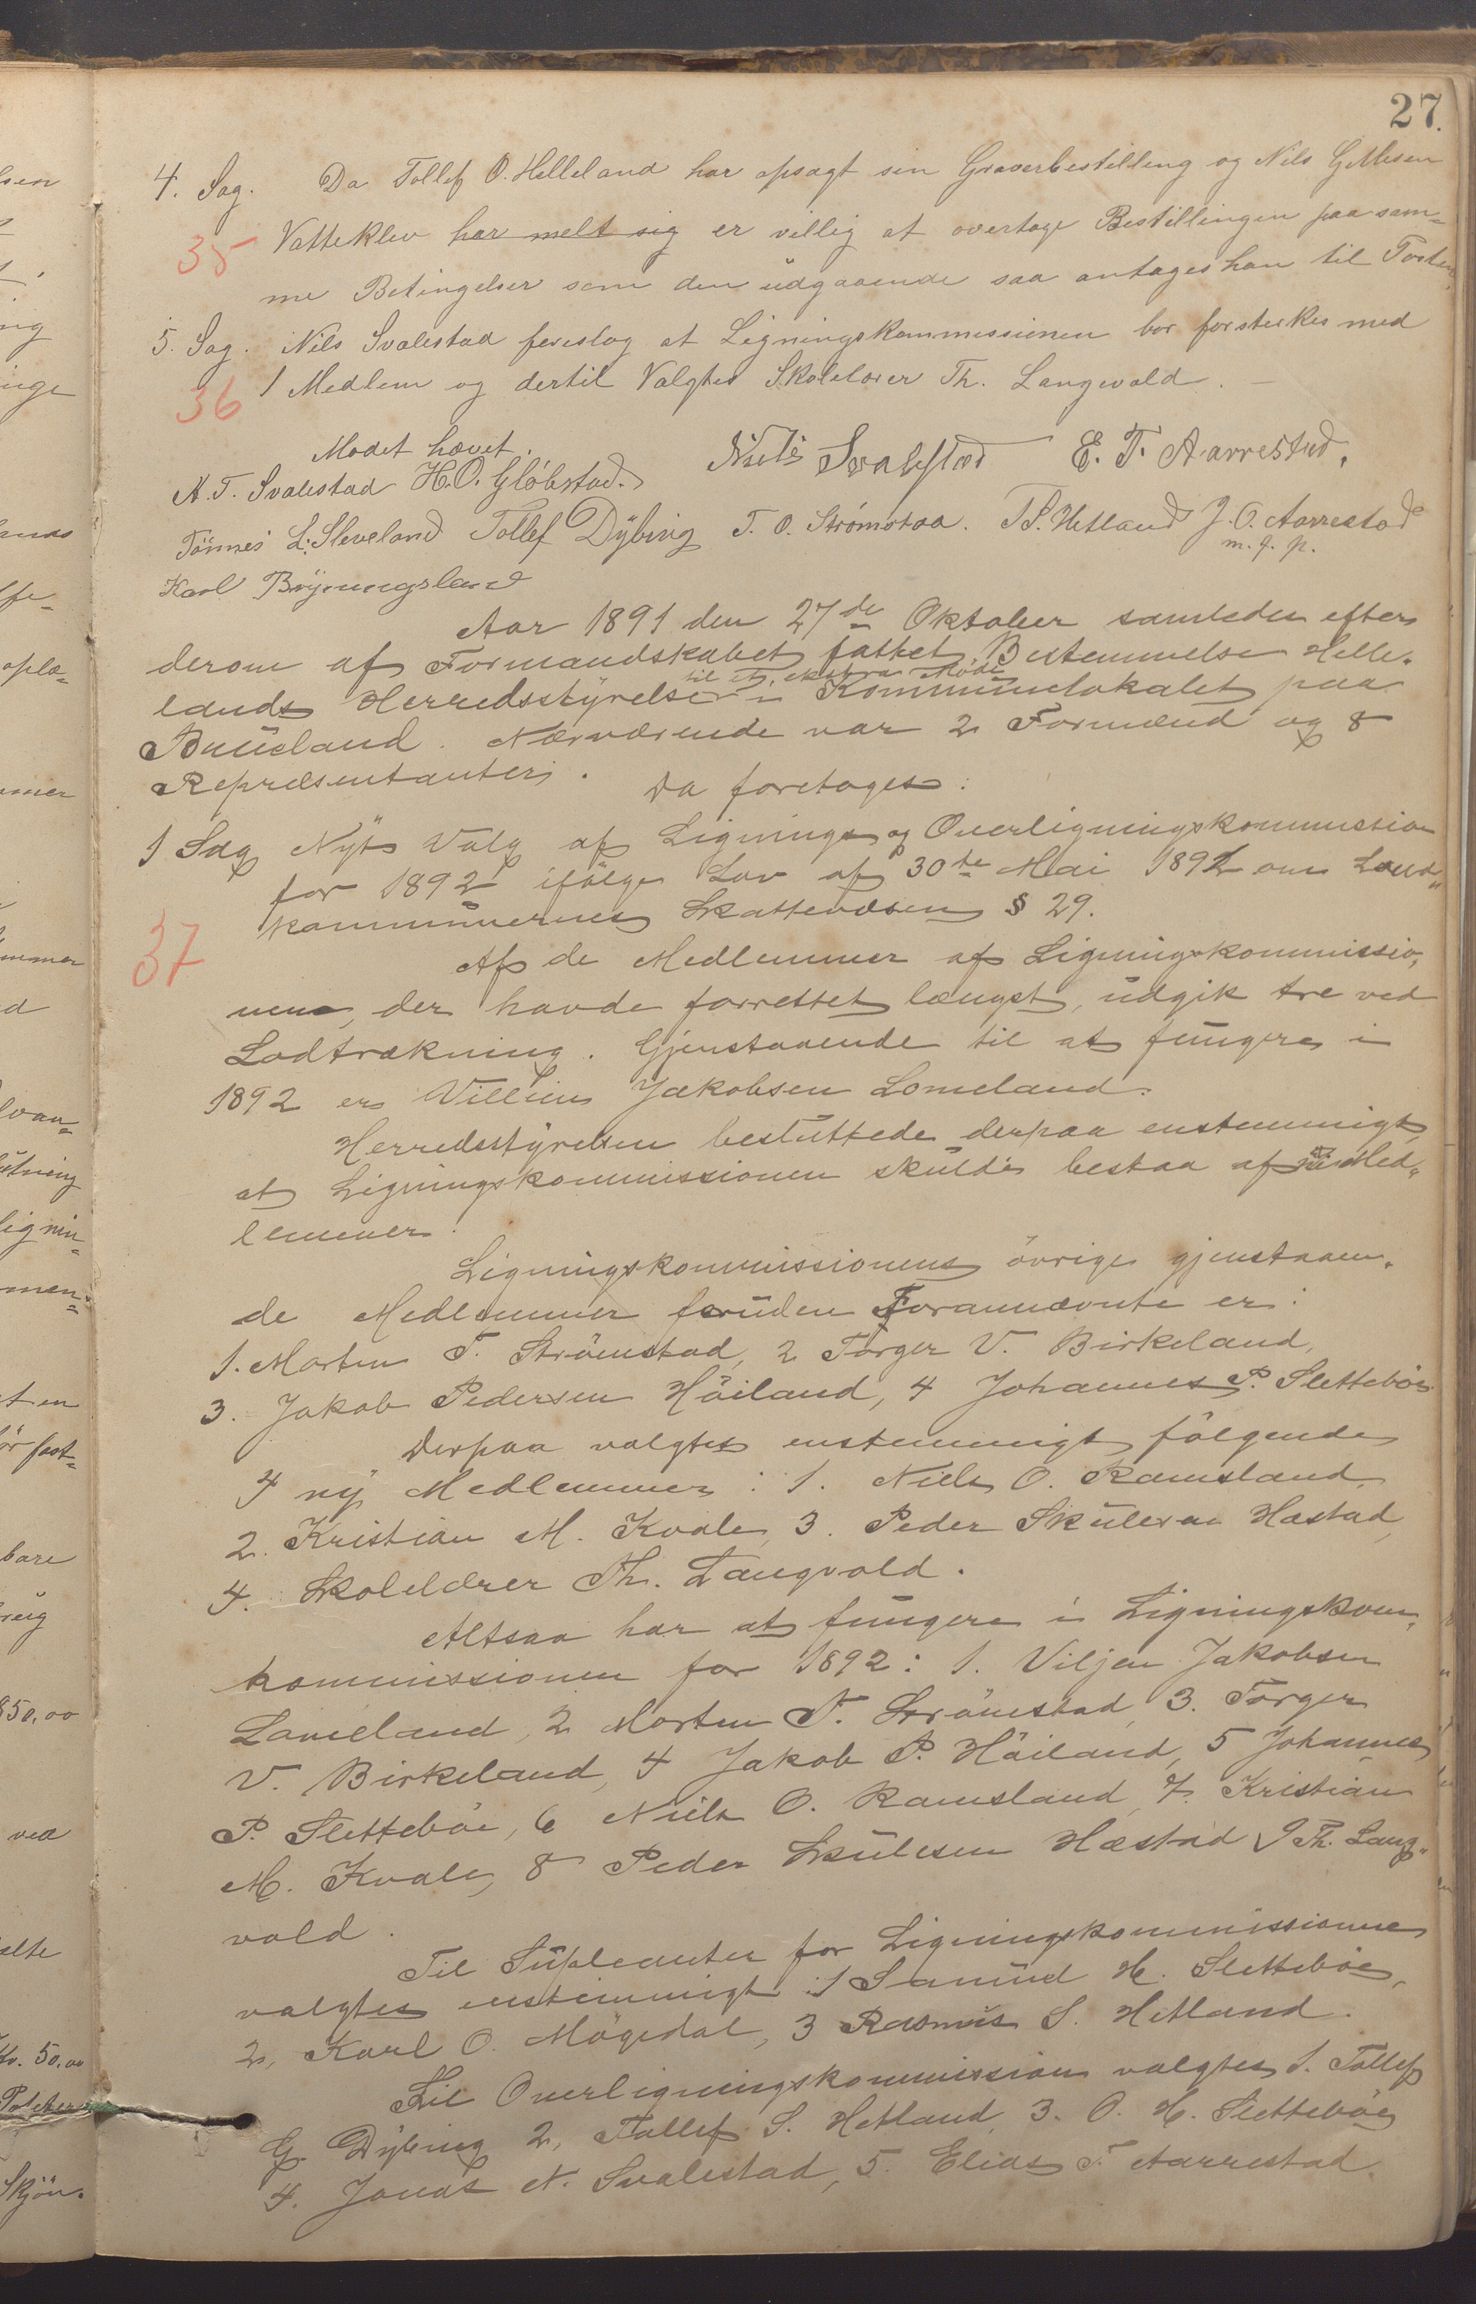 27.
4. Sag. Da Tollef O. Helleland har opsagt sin Graverbestilling og Nils G. Nilsen
35 Vatteklev har melt sig er villig at overtage Bestillingen paa sam-
me Betingelser som den udgaaende saa antages han til Posten
5. Sag. Nils Svalestad foreslog at Ligningskommissionen bør forsterkes med
36 1 Medlem og dertil Valgtes Skolelærer Th. Langvald.
Mødet hævet.
Niels Svalestad E. T. Aarrestad.
A. T. Svalestad H. O. Gløbstad.
Tönnes L. Sleveland Tollef Dÿbing T. O. Strømstad. T. S. Hetland J. O. Aarrestad
m. f. p.
Karl Brÿnungsland
Aar 1891 den 27de Oktober samledes efter
derom af Formandskabet fattet Bestemmelse Helle-
til et ekstra Møde
lands Herredsstÿrelse i Kommunelokalet paa
Bueland. Nærværende var 2 Formænd og 8
Repræsentanter. Da foretages:
1 Sag Nÿt Valg af Lignings og Overligningskommission
for 1892 ifølge Lov af 30te Mai 1891 om Land-
kommunernes Skattevæsen § 29.
37 Af de Medlemmer af Ligningskommissio-
nen, der havde forrettet længst, udgik tre ved
Lodtrækning. Gjenstaaende til at fungere i
1892 er Villum Jakobsen Lomeland.
Herredsstÿrelsen besluttede derpaa enstemmigt,
at Ligningskommissionen skulde bestaa af ni Med-
lemmer.
Ligningskommissionens övrige gjenstaaen-
de Medlemmer foruden Forannævnte er:
1. Morten T. Strömstad, 2 Törger V. Birkeland,
3. Jakob Pedersen Höiland, 4 Johannes P. Sletteböe
Derpaa valgtes enstemmigt fölgende
4 nÿ Medlemmer: 1. Niels O. Ramsland,
2. Kristian M. Kvale, 3. Peder Skulesen Hæstad,
4. Skolelærer Th. Langvald.
Altsaa har at fungere i Ligningskom-
kommissionen for 1892: 1. Viljem Jakobsen
Lomeland, 2 Morten T. Strömstad, 3. Törger
V. Birkeland, 4 Jakob P. Höiland, 5 Johannes
P. Sletteböe, 6 Niels O. Ramsland, 7. Kristian
M. Kvale, 8 Peder Skulesen Hæstad 9 Th. Lang-
vald.
Til Supleanter for Ligningskommissionen
valgtes enstemmigt: 1 Samuel H. Sletteböe,
2, Karl O. Mögedal, 3 Rasmus S. Hetland.
Til Overligningskommission valgtes 1. Tollef
G. Dÿbing 2, Tollef S. Hetland, 3. O. H. Sletteböe
4. Jonas N. Svalestad, 5. Elias T. Aarrestad.